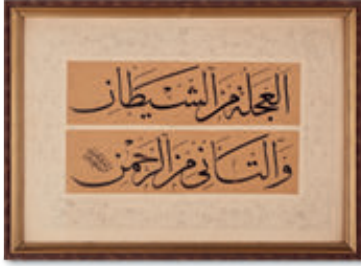 العجلة من الشيطان
والتأنى من الرحمن